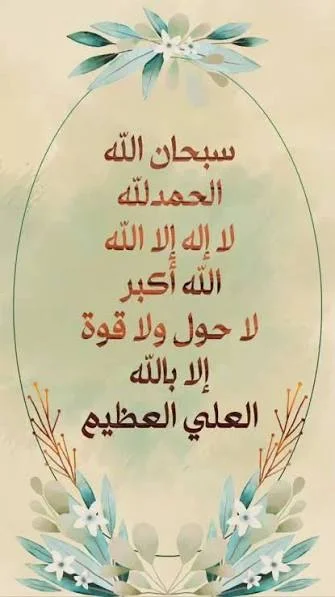 سبحان الله
الحمدلله
لا إله إلا الله
الله أكبر
لا حول ولا قوة
إلا بالله
العلي العظيم